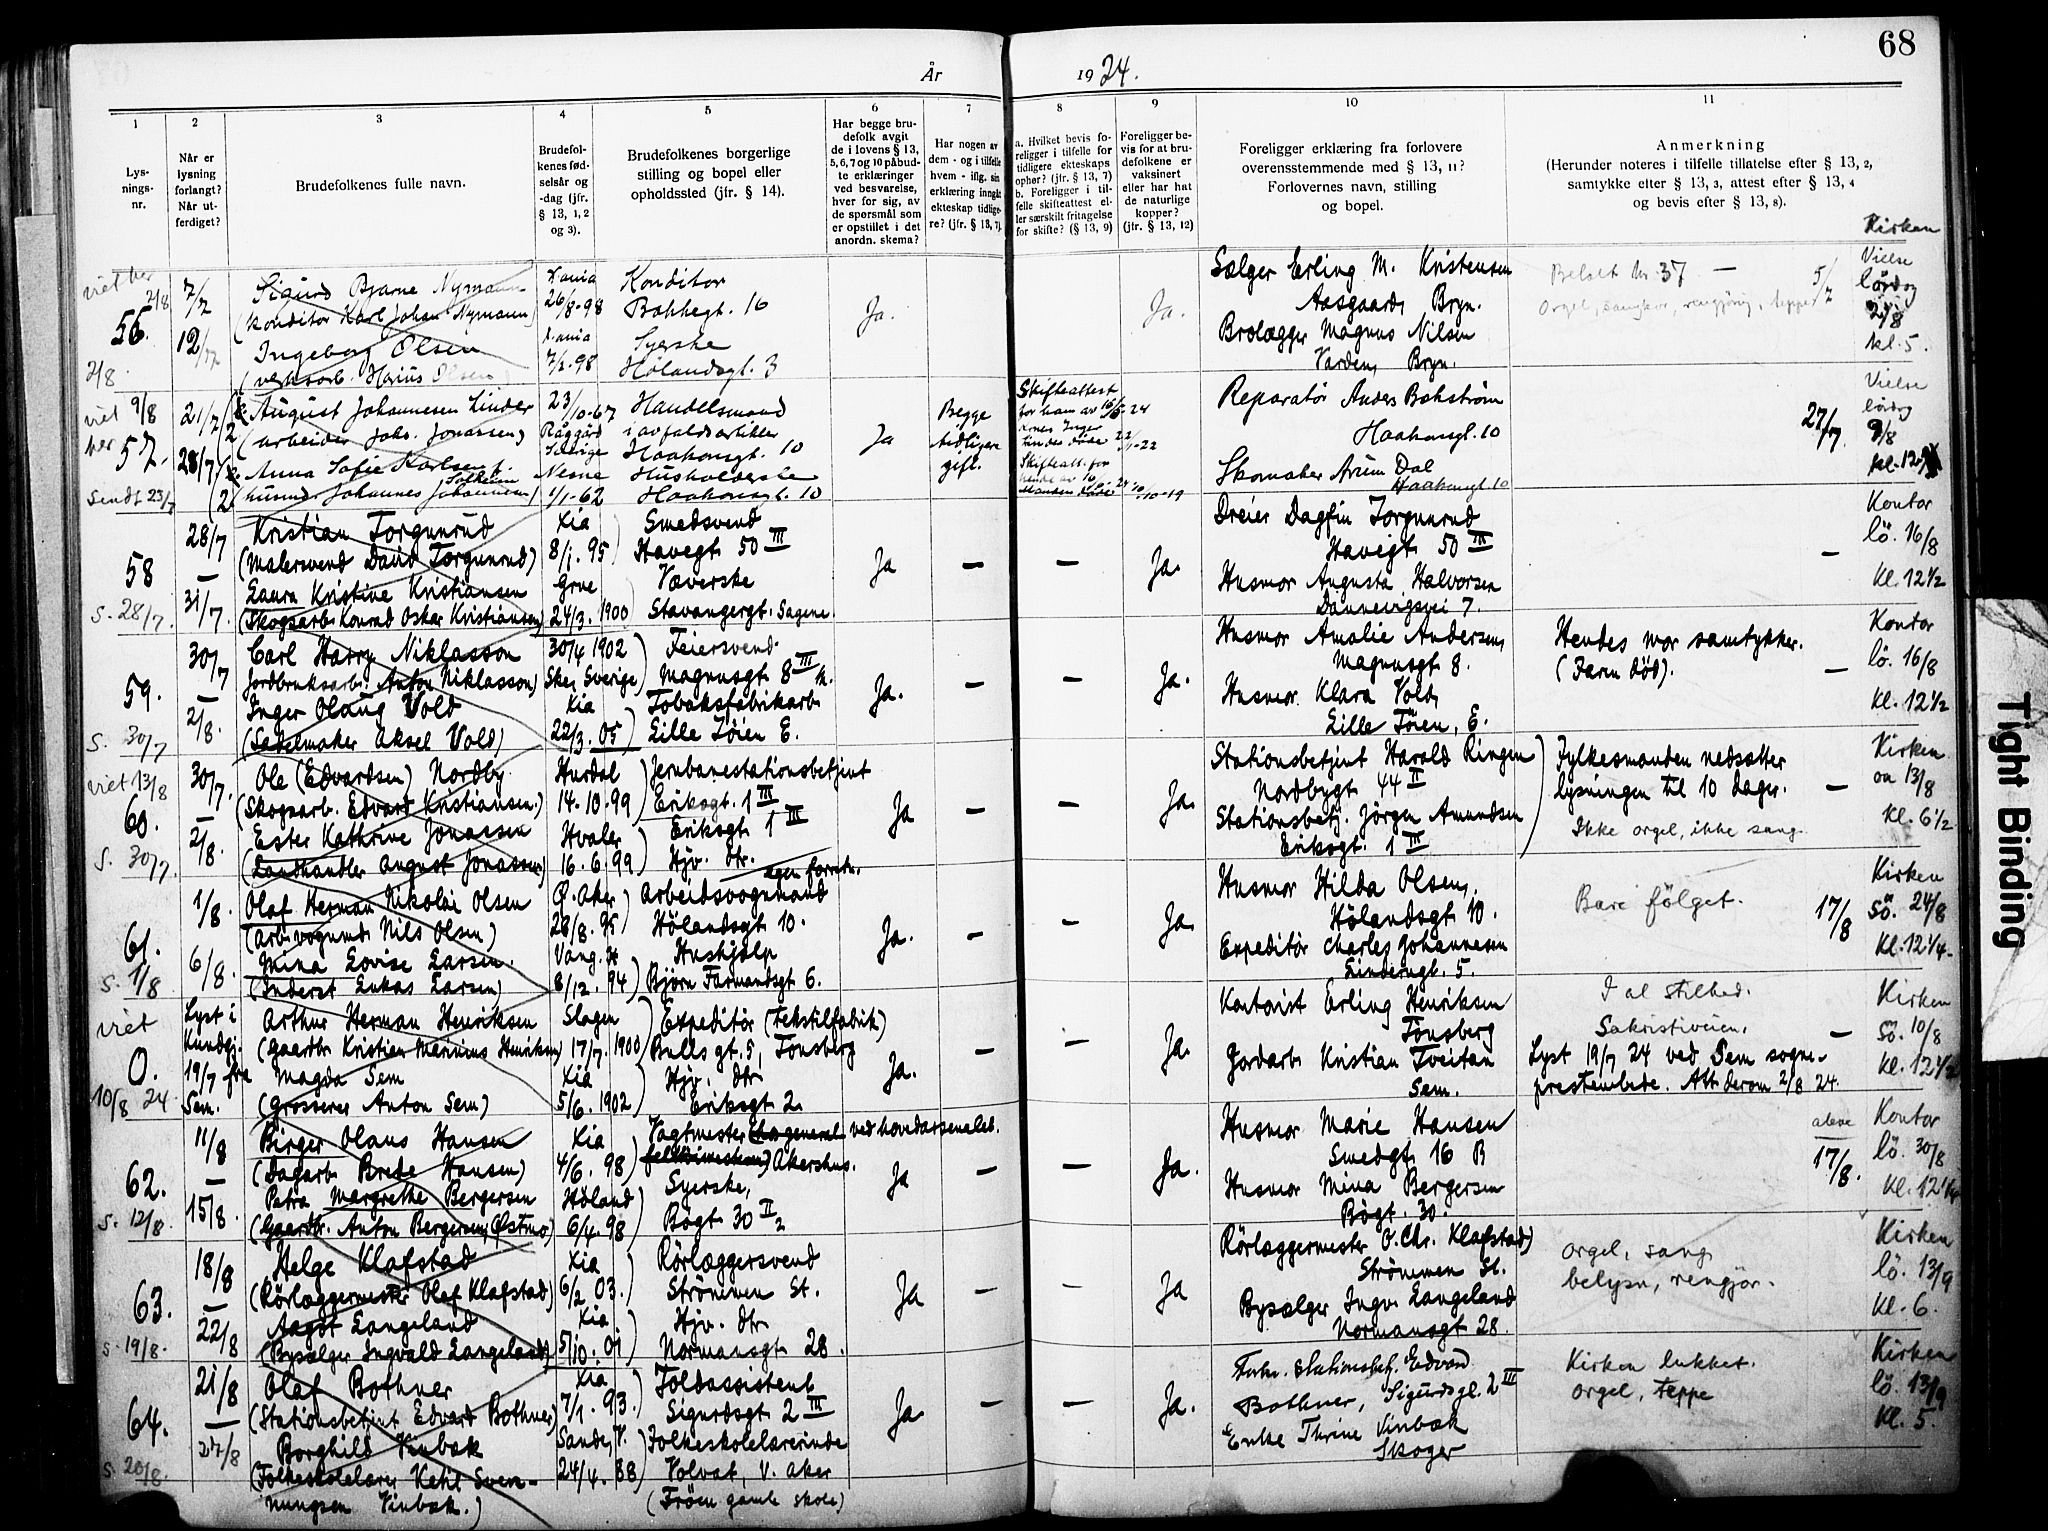 68
År 1924.
1 2 3 4 5 6 7 8 9 10 11
Lys-
nings-
nr.
Når er
lysning
forlangt?
Når ut-
ferdiget?
Brudefolkenes fulle navn.
Brudefol-
kenes fød-
selsår og
-dag (jfr.
§ 13, 1, 2
og 3).
Brudefolkenes borgerlige
stilling og bopel eller
opholdssted (jfr. § 14).
Har begge bru-
defolk avgit
de i lovens § 13,
5, 6, 7 og 10 påbud-
te erklæringer
ved besvarelse,
hver for sig, av
de spørsmål som
er opstillet i det
anordn. skema?
Har nogen av
dem - og i tilfelle
hvem - iflg. sin
erklæring inngått
ekteskap tidlige-
re? (jfr. § 13, 7).
a. Hvilket bevis fo-
religger i tilfelle for
tidligere ekteskaps
ophør? (jfr. § 13, 7)
b. Foreligger i til-
felle skifteattest el-
ler særskilt fritagelse
for skifte? (§ 13, 9)
Foreligger be-
vis for at bru-
defolkene er
vaksinert
eller har hat
de naturlige
kopper?
(jfr. § 13, 12)
Foreligger erklæring fra forlovere
overensstemmende med § 13, 11?
Forlovernes navn, stilling
og bopel.
Anmerkning
(Herunder noteres i tilfelle tillatelse efter § 13, 2,
samtykke efter § 13, 3, attest efter § 13, 4
og bevis efter § 13, 8).
viet her 2/8
56.
2/8
7/7
12/7
Sigurd Bjarne Nymann
(Konditor Karl Johan Nymann)
Ingeborg Olsen
(verksarb. Marius Olsen)
X.ania
26/8-98
X.ania
7/2-98
Konditor
Bakkegt. 16
Syerske
Hølandsgt. 3
Ja.
Ja.
Sælger Erling M. Kristensen
Aasgaard, Bryn.
Brolægger Magnus Nilsen
Varden, Bryn.
Betalt kr. 37 —
Orgel, rengjøring, teppe
5/7
Kirken
Vielse
lørdag
2/8
kl. 5.
viet 9/8
her
57.
Sendt 23/7
21/7
28/7
August Johannesen Linder
(arbeider Johs. Jonassen)
Anna Sofie Karlsen f. Solheim
(husmd. Johannes Johannesen)
23/10-67
Sverige
Nesne
1/1-62
Handelsmand
i avfaldsartikler
Haakonsgt. 10
Husholderske
Haakonsgt. 10
Ja
Begge
tidligere
gift.
Skifteattest
for ham av 16/5-24
Inger
Linder døde 22/1-22
Skifteatt. for
hende av 10/
10/10-19
Reparatør Anders Bækstrøm
Haakonsgt. 10
Skomaker Arum Dal
Haakonsgt. 10
27/7.
Vielse
lørdag
9/8
kl. 12
58
s. 28/7.
28/7
—
31/7.
Kristian Torgunrud
(Malersvend David Torgunrud)
Laura Kristine Kristiansen
(Skogsarb. Konrad Oskar Kristiansen)
Kia
8/1. 95
Grue
24/3. 1900
Smedsvend
Havegt. 50 III
Væverske
Stavangergt. Sagene.
Ja
—
—
Ja.
Dreier Dagfin Torgunrud
Havegt. 50 III
Husmor Augusta Halvorsen
Dannevigsvei 7.
—
Kontor
lö. 16/8
kl. 12 1/2
59.
s. 30/7
30/7
—
2/8.
Carl Harry Niklasson
(Jordbruksarb. Anton Niklasson)
Inger Olaug Vold
(Sadelmaker Aksel Vold)
30/4 1902
Skee Sverige
Kia
22/3. 05
Feiersvend
Magnusgt. 8 III
Tobaksfabrikarb
Lille Tøien E.
Ja.
—
—
Ja.
Husmor Amalie Andersen,
Magnusgt. 8.
Husmor Klara Vold,
Lille Töien, E.
Hendes mor samtykker.
(Faren död).
—
Kontor
lö. 16/8
kl. 12 1/2
viet 13/8
60.
s. 30/7.
30/7.
—
2/8.
Ole (Edvardsen) Nordby
(Skogsarb. Edvard Kristiansen.)
Ester Kathrine Jonassen
(Landhandler August Jonassen)
Hurdal
14.10.99
Hvaler
16.6.99
Jernbanestationsbetjent
Eriksgt. 1 III
Eriksgt. 1 III
Hjv. dtr.
Ja
—
—
Ja.
Stationsbetjent Harald Ringen
Nordbygt. 44 II
Stationsbetj. Jörgen Amundsen
Eriksgt. 1 III
Fylkesmanden nedsætter
lysningen til 10 dager.
Ikke orgel, ikke sang.
—
Kirken
on 13/8
kl. 6 1/2
61.
s. 1/8
1/8.
6/8.
Olaf Herman Nikolai Olsen
(Arb. vognmd. Nils Olsen)
Mina Lovise Larsen.
(Inderst Lukas Larsen)
Ø. Aker
28/8. 95
Vang. H
6/12. 94
egen forretn.
Arbeidsvognmand
Hölandsgt. 10.
Hushjælp
Bjørn Farmandsgt. 6.
Ja.
—
—
Ja.
Husmor Hilda Olsen,
Hölandsgt. 10.
Expeditör Charles Johannesen
Linderngt. 5.
Bare fölget.
17/8
Kirken
sö. 24/8
kl. 12 1/4.
viet
0.
10/8 24
Lyst i
Kundgj.
19/7 fra
Sem.
Arthur Herman Henriksen
(Gaardbr. Kristian Marinius Henriksen)
Magda Sem
(Grosserer Anton Sem)
Slagen
17/7. 1900
Kia
5/6. 1902
Expeditör (Tekstilfabrik)
Bulls gt. 5, Tönsberg
Hjv. dtr
Eriksgt. 2
Ja.
—
—
Ja.
Kontorist Erling Henriksen
Tönsberg
Gordarb. Kristian Tveitan
Sem.
I al stilhed.
Sakristiveien.
Lyst 19/7 24 ved Sem sogne-
prestembede. Att. derom 2/8 24.
—
Kirken
sö. 10/8
kl. 12 1/2
62.
s. 12/8.
11/8
—
15/8.
Birger Olaus Hansen
(Dagarb. Brede Hansen)
Petra Margrethe Bergersen
(Gaardbr. Anton Bergersen, Østmo)
Kia
4/6. 98
Höland
6/4. 98
Vagtmester ved hovedarsenalet.
Akershus.
Syerske,
Bøgt. 30 II 2
Ja
—
—
Ja.
Husmor Marie Hansen
Smedgt. 16 B
Husmor Mina Bergersen
Bøgt. 30.
alene
17/8.
Kontor
lö. 30/8
kl. 12 1/4
63.
s. 19/8.
18/8
—
22/8
Helge Klafstad
(Rörlæggermester Olaf Klafstad)
Aagot Langeland
(Bysælger Ingvald Langeland)
Kia
6/2 03.
Kia
5/10. 01
Rörlæggersvend
Strömmen St.
Hjv. dtr
Normansgt. 28.
Ja
—
—
Ja
Rörlæggermester O. Chr. Klafstad
Strömmen St.
Bysælger Ingv. Langeland
Normansgt. 28.
Orgel, sang,
belysn, rengjör.
Kirken
lö. 13/9
kl. 6.
64.
s. 20/8.
21/8
—
27/8
Olaf Bothner
(Stationsbetjent Edvard Bothner)
Borghild Vinbæk
(Folkeskolelærer Ketil Sven-
nungsen Vinbæk.)
Kia
7/1. 93.
Sande, V.
24/4. 88
Toldassistent
Sigurdsgt. 2 III
Folkeskolelærerinde
Volvat, V. Aker
(Fröen gamle skole)
Ja
—
—
Ja.
Stationsbet. Edvard
Bothner, Sigurdsgt. 2 III
Enke Thrine Vinbæk
Skoger
Kirken lukket.
Orgel, teppe
Kirken
lö. 13/9
kl. 5.
Tight Binding